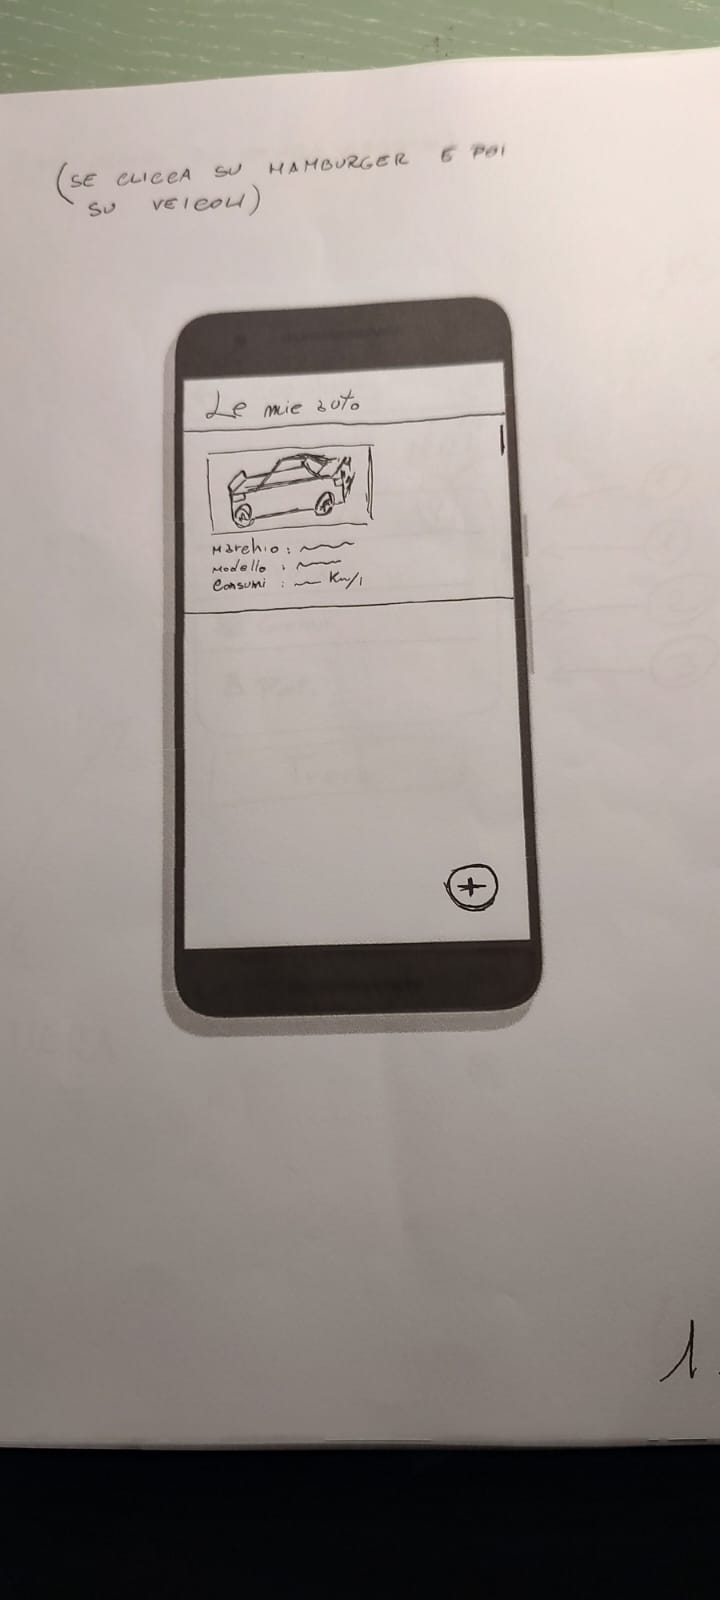 (SE CLICCA SU HAMBURGER E POI
SU VEICOLI)
Le mie auto
Marchio :
Modello :
Consumi : Km/l
+
1